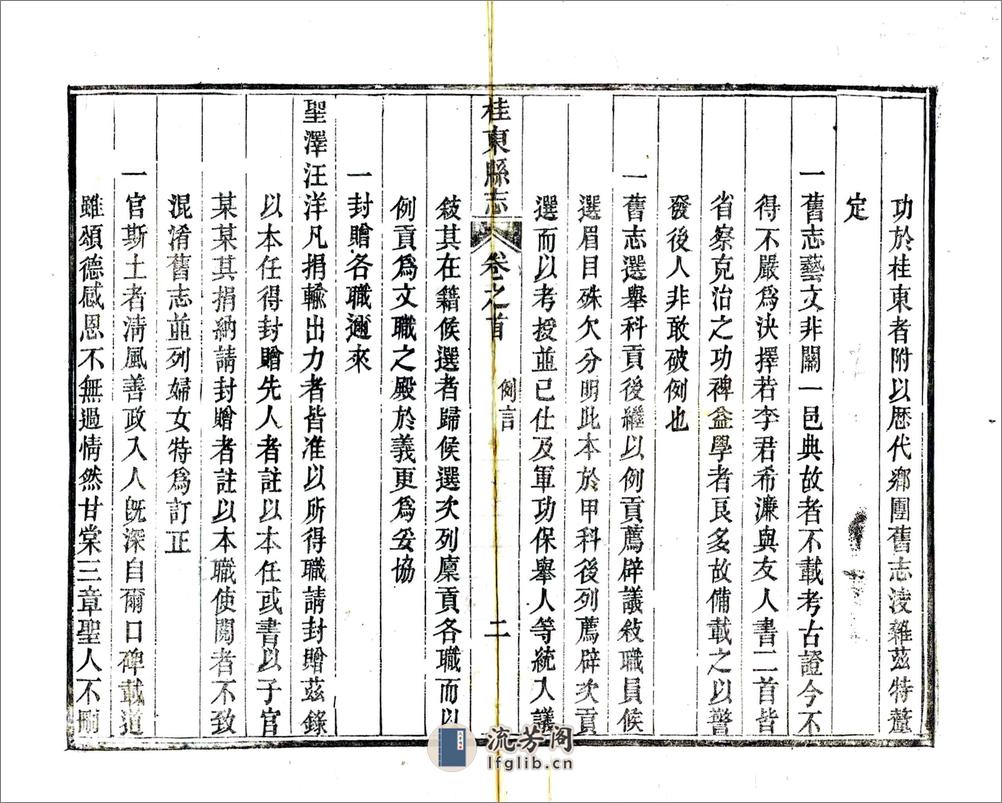 功於桂東者附以歷代鄉團舊志淩雜茲特釐
定
一舊志藝文非關一邑典故者不載考古證今不
得不嚴爲決擇若李君希濂與友人書二首皆
省察克治之功裨益學者良多故備載之以警
發後人非敢破例也
一舊志選舉科貢後繼以例貢薦辟議敍職員候
選眉目殊欠分明此本於甲科後列薦辟次貢
選而以考授並已仕及軍功保舉人等統入議
桂東縣志 卷之首 例言 二
敍其在籍候選者歸候選次列廩貢各職而以
例貢爲文職之殿於義更爲妥協
一封贈各職邇來
聖澤汪洋凡捐輸出力者皆准以所得職請封贈茲錄
以本任得封贈先人者註以本任或書以子官
某某其捐納請封贈者註以本職使閱者不致
混淆舊志並列婦女特爲訂正
一官斯土者清風善政入人旣深自爾口碑載道
雖頌德感恩不無過情然甘棠三章聖人不刪
流芳阁
lfglib.cn